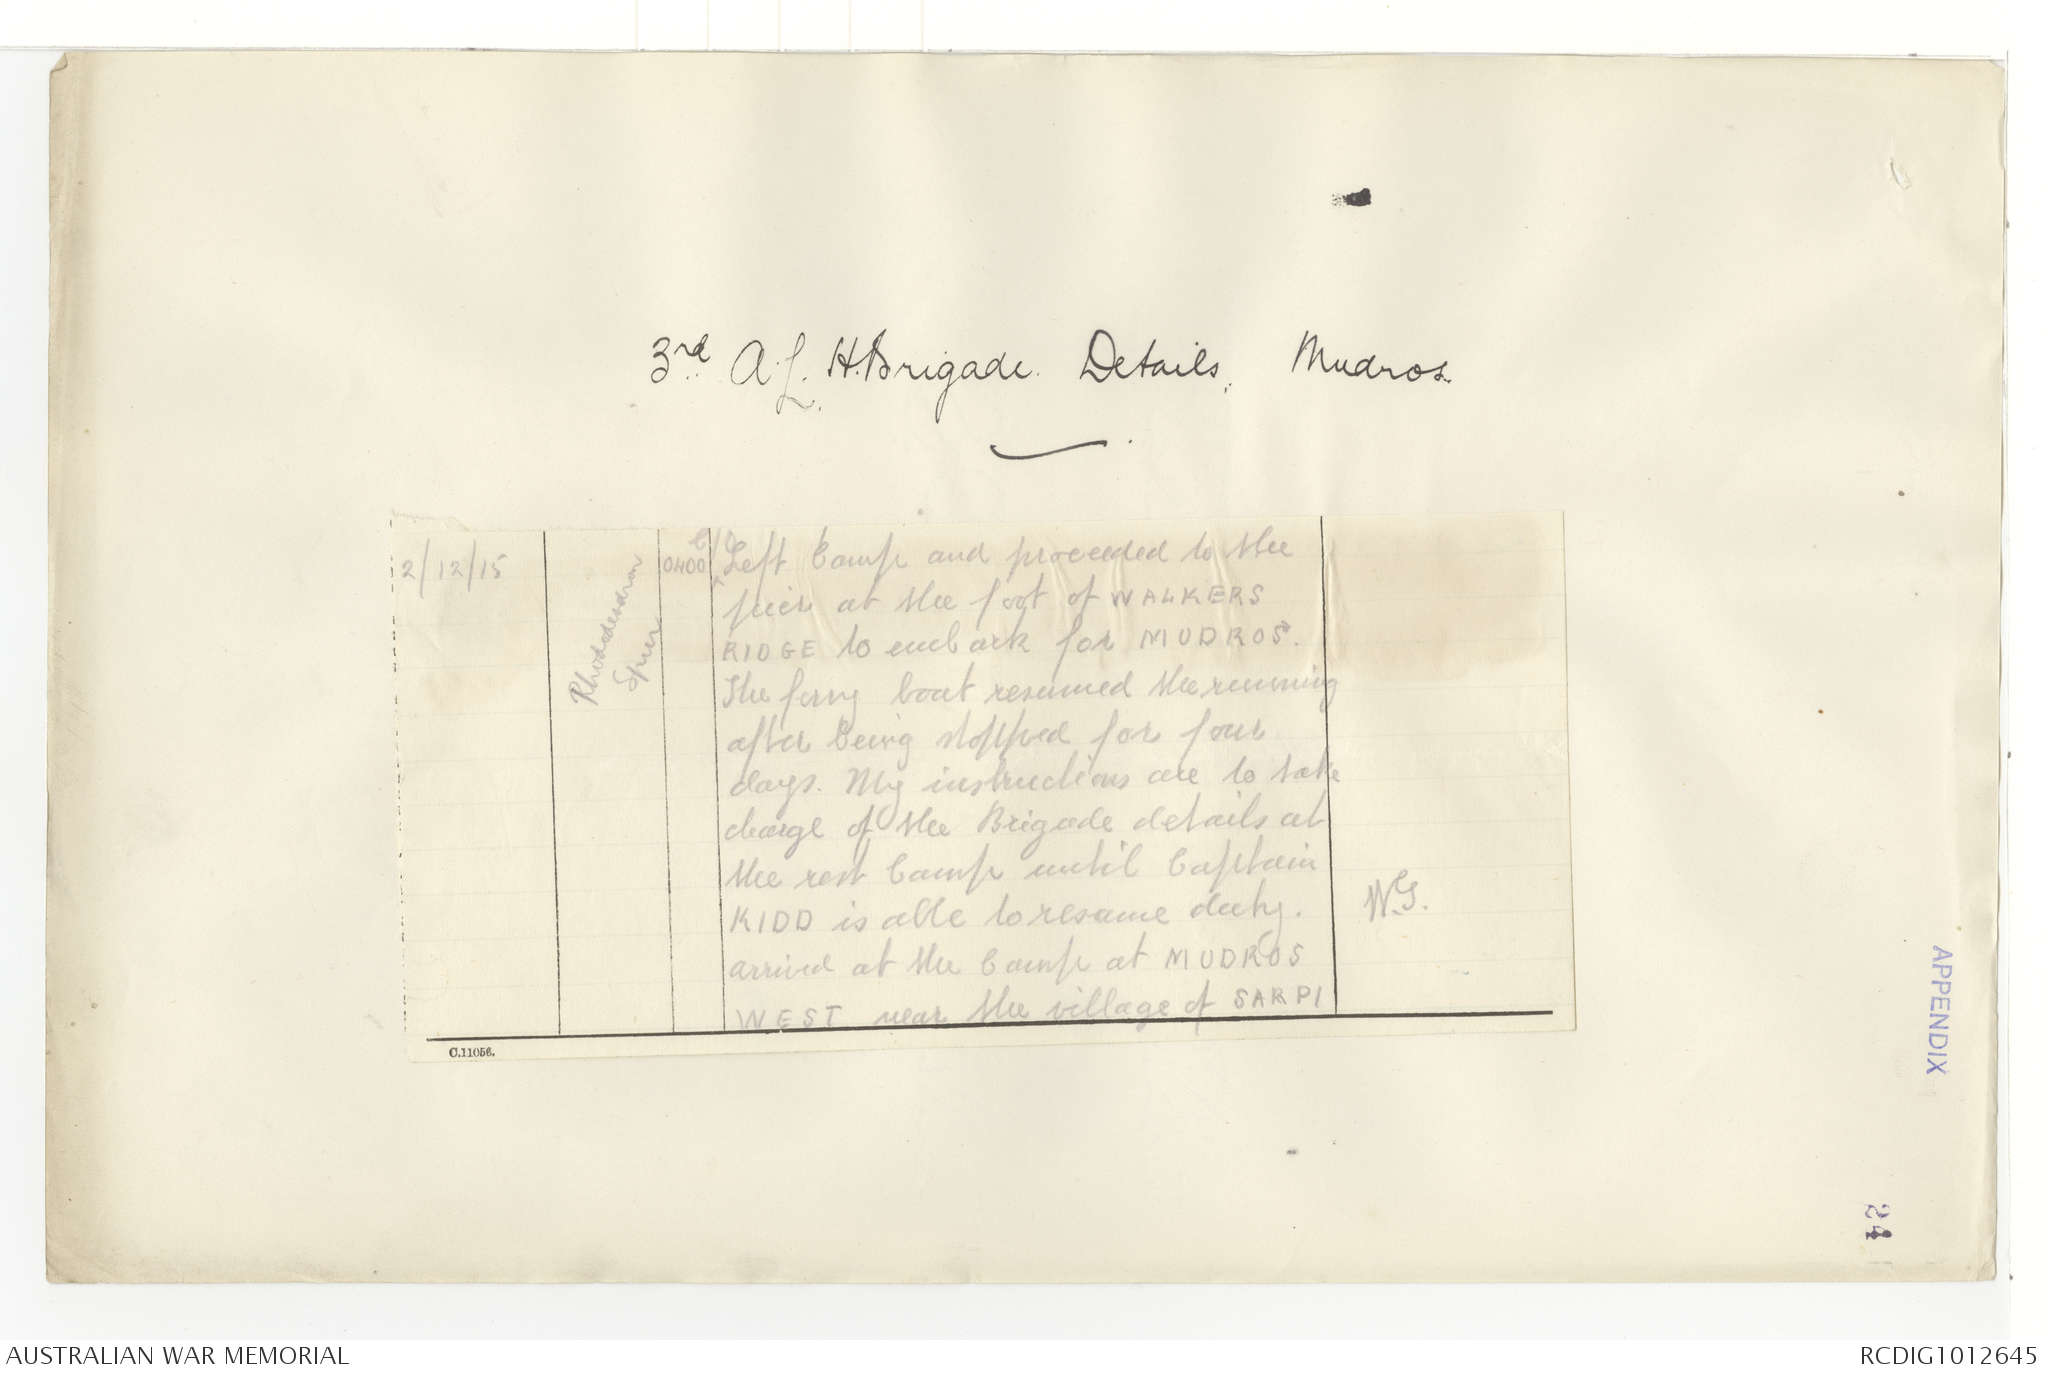 3rd A.L.H.Brigade. Details, Mudros.
2/12/15
Rhododendron
Spur
0400
Left Camp and proceeded to the
pier at the foot of WALKERS
RIDGE to embark for MUDROS.
The ferry boat resumed the running
after being stopped for four
days. My instructions are to take
charge of the Brigade details at
the rest Camp until Captain
KIDD is able to resume duty.
arrived at the Camp at MUDROS
WEST near the village of SARPI
W.G.
C.11056.
APPENDIX
24
AUSTRALIAN WAR MEMORIAL
RCDIG1012645